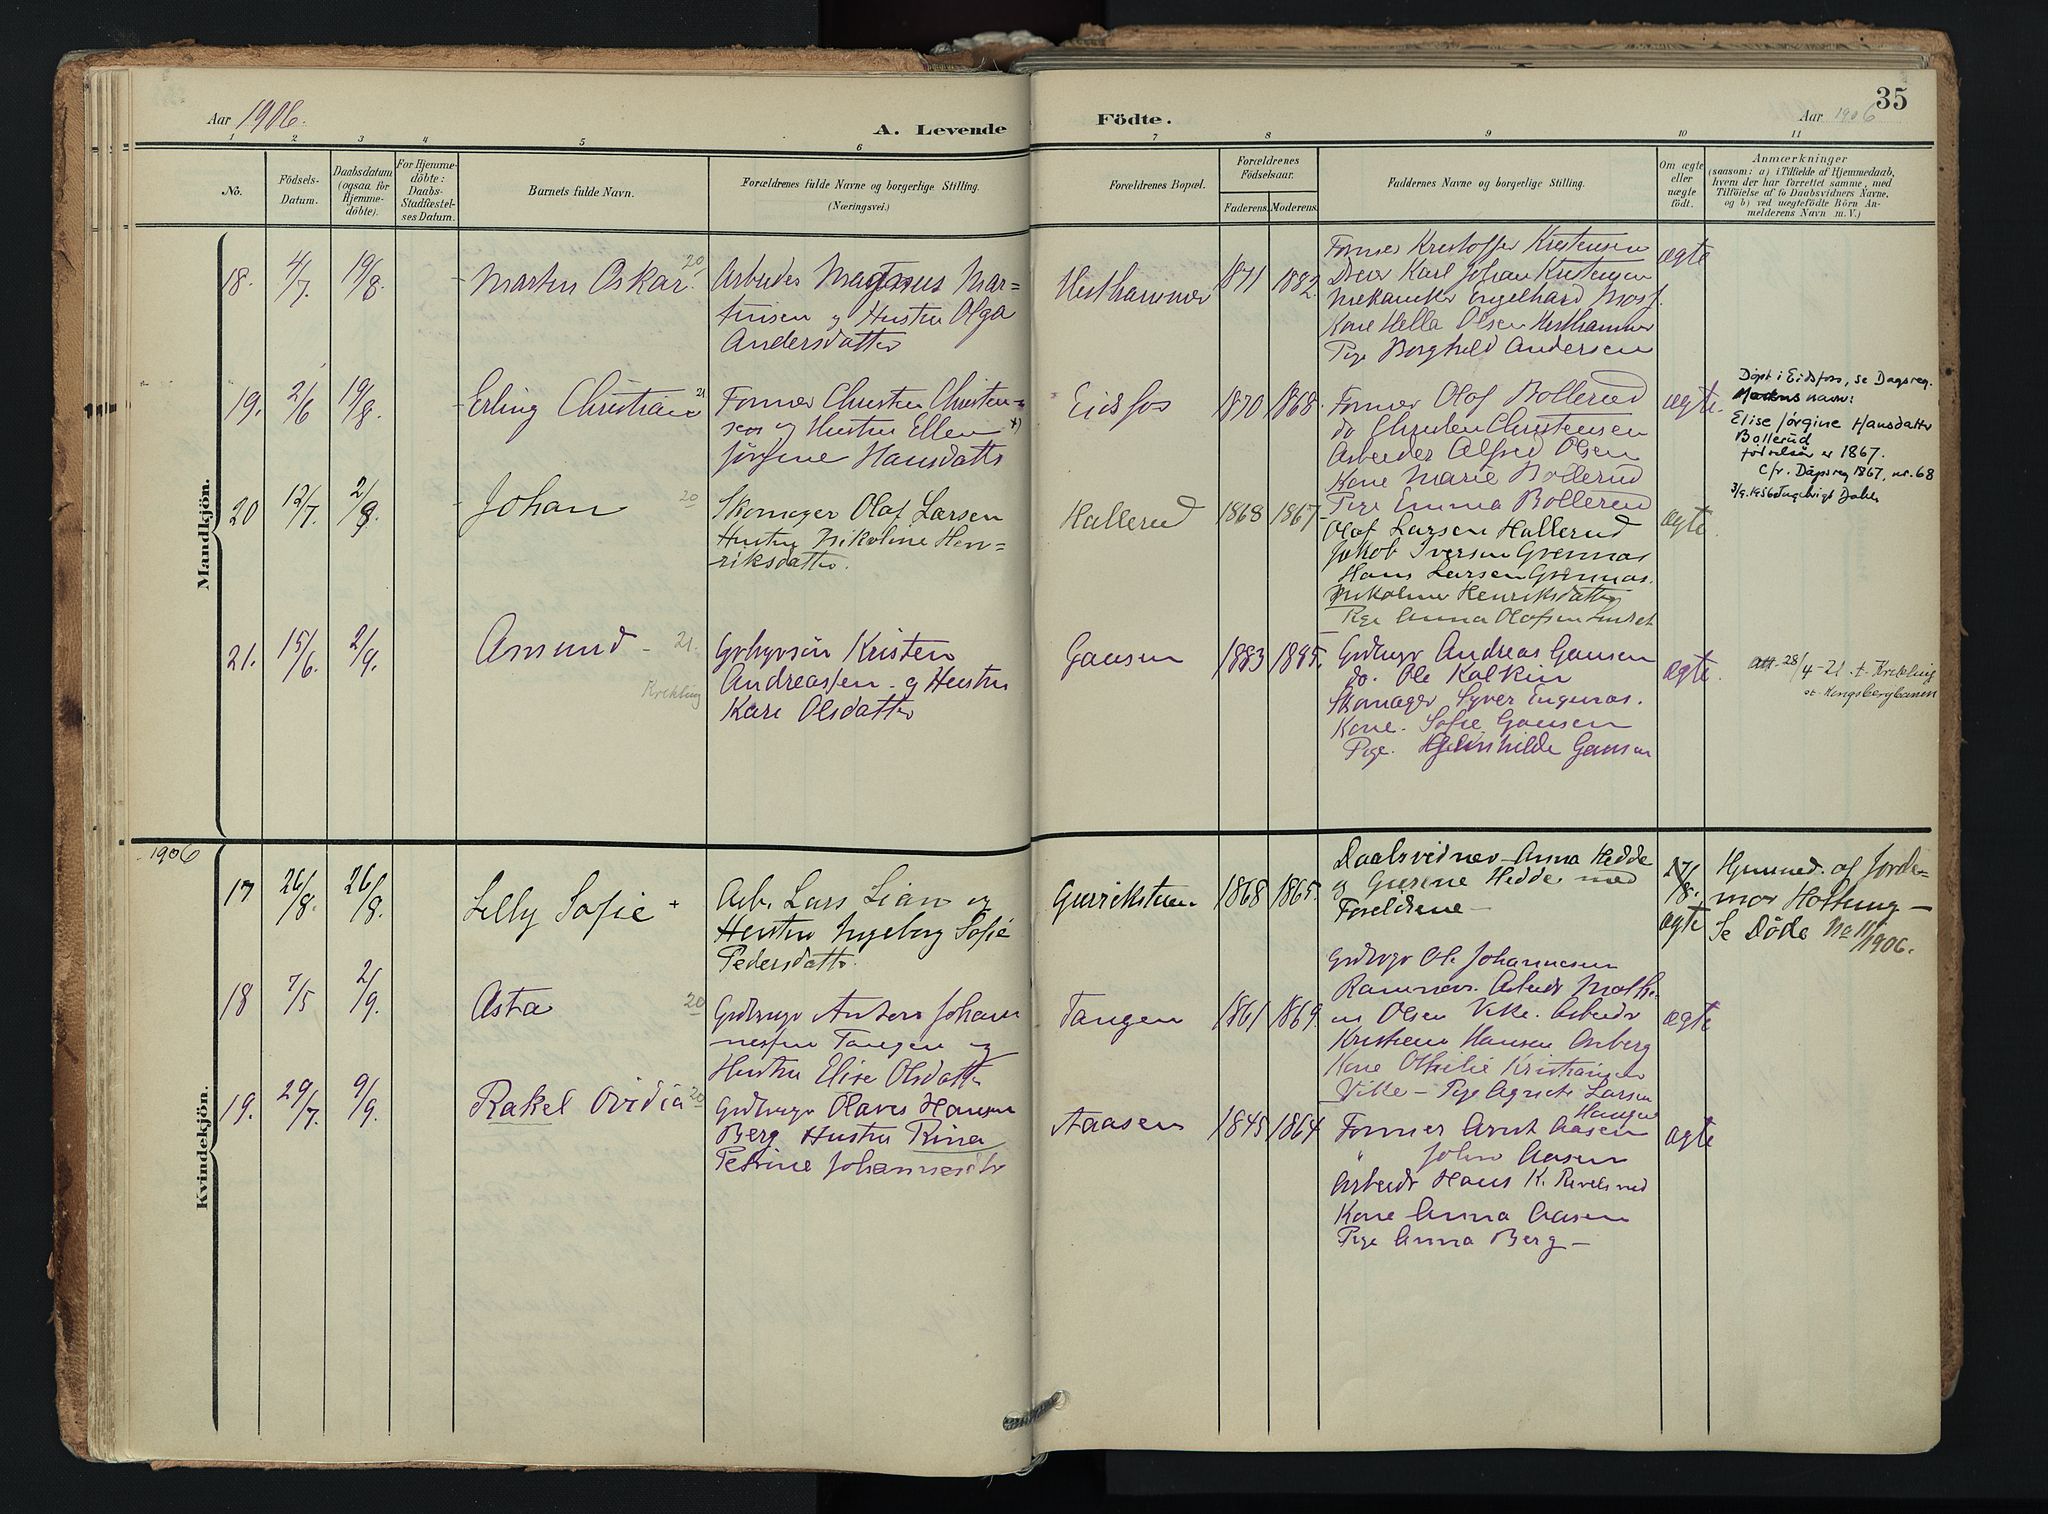 35
Aar 1906.
A. Levende Födte.
Aar 1906
1 2 3 4 5 6 7 8 9 10 11
No.
Födsels-
Datum.
Daabsdatum
(ogsaa for
Hjemme-
döbte).
For Hjemme-
döbte:
Daabs-
Stadfæstel-
ses Datum.
Barnets fulde Navn.
Forældrenes fulde Navne og borgerlige Stilling.
(Næringsvei.)
Forældrenes Bopæl.
Forældrenes
Födselsaar.
Faderens. Moderens.
Faddernes Navne og borgerlige Stilling.
Om ægte
eller
uægte
födt.
Anmærkninger
(saasom: a) i Tilfælde af Hjemmedaab,
hvem der har forrettet samme, med
Tilföielse af to Daabsvidners Navne,
og b) ved uægtefödte Börn An-
melderens Navn m. V.)
Mandkjön.
18. 4/7. 19/8. Martin Oskar. 20
Arbeider Magnus Mar-
tinsen og Hustru Olga
Andersdatter
Hesthammer 1871 1882.
Former Kristoffer Kristensen
Dreier Karl Johan Kristensen
Mekaniker Engelhard Moss.
Kone Hella Olsen Hesthammer
Pige Borghild Andersen
ægte
19. 2/6 19/8. Erling Christian 21
Former Christen Christen-
sen og Hustru Ellen x)
Jörgine Hansdatter
Eidsfos 1870 1868.
Former Olof Bollerud
do Christen Christensen
Arbeider Alfred Olsen
Kone Marie Bollerud
Pige Emma Bollerud
ægte.
Döpt i Eidsfoss, se Dagsreg.
navn:
Elise Jørgine Hansdatter
Bollerud
fødselsår er 1867.
Cfr. Dåpsreg 1867, nr. 68
3/9.1956 Ingebrigt Dahle
20 12/7. 2/9 Johan 20
Skomager Olaf Larsen
Hustru Nikoline Hen-
riksdatter.
Hallerud 1868 1867
Olaf Larsen Hallerud
Jakob Iversen Grennas
Hans Larsen Grennas.
Nikoline Henriksdatter
Pige Anna Olafsen
ægte.
21. 15/6. 2/9. Amund - 21.
Krekling
Kristen
Andreassen og Hustru
Kari Olsdatter
Gausen 1883 1885.
Andreas Gausen
do. Ole Kalkin
Skomager Syver Engenas.
Kone. Sofie Gausen
Pige. Gunhilde Gausen
ægte.
Att. 28/4-21. t. Krekling
st. Kongsbergbanen
1906
Kvindekjön.
17 26/8. 26/8. Lilly Sofie +
Arb. Lars Lian og
Hustru Ingeborg Sofie
Pedersdatter.
1868 1865.
Daabsvidner Anna Hedde
og Gurine Hedde med
Foreldrene -
27/8.
ægte
Hjemmed. af Jorde-
mor Holtung -
Se Döde No 11/1906.
18 7/5 2/9. Asta 20
Gdbruger Anton Johan
nessen Tangen og
Hustru Elise Olsdatter
Tangen 1861 1869.
Gdbruger Ole Johannesen
Ramnæs. Arbeider Mathi-
as Olsen Vike. Arbeider
Kristian Hansen Anberg
Kone Othilie Kristiansen
Vike - Pige Agnete Larsen
Haugen
ægte
19. 29/7. 9/9. Rakel Ovidia 20
Gdbruger Olaves Hansen
Berg Hustru Rina
Petrine Johannesdtr
Aaasen 1845 1864
Former Arnt Aasen
" John Aasen
Arbeider Hans K.
Kone Anna Aasen
Pige Anna Berg -
ægte